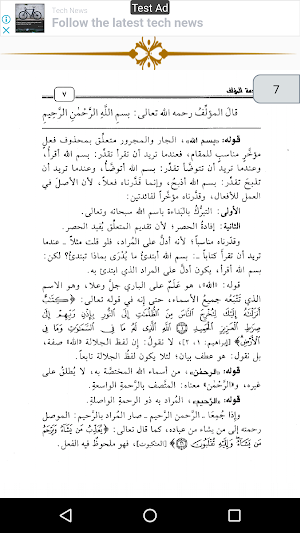 Test Ad
Tech News
Follow the latest tech news
7
٧
قالَ المؤلِّفُ رحمه الله تعالى: بسمِ اللهِ الرَّحْمٰنِ الرَّحِيمِ
قوله: «بسم الله»، الجار والمجرور متعلِّق بمحذوف فعلٍ
مؤخَّرٍ مناسبٍ للمقام، فعندما تريد أن تقرأ تقدِّر: بسم الله أقرأُ،
وعندما تريد أن تتوضّأ تقدِّر: بسم الله أتوضّأُ، وعندما تريد أن
تذبح تقدِّر: بسم الله أذبحُ، وإنما قدَّرناه فعلاً، لأن الأصلَ في
العمل للأفعال، وقدَّرناه مؤخَّراً لفائدتين:
الأولى: التبرُّكُ بالبَداءة باسم الله سبحانه وتعالى.
الثانية: إفادةُ الحصر؛ لأن تقديم المتعلِّق يُفيد الحصر.
وقدّرناه مناسباً؛ لأنه أدلُّ على المُراد، فلو قلت مثلاً ـ عندما
تريد أن تقرأ كتاباً ـ: بسم الله أبتدئُ، ما يُدْرَى بماذا تبتدئُ؟ لكن:
بسم الله أقرأ، يكون أدلَّ على المراد الذي ابتدئ به.
قوله: «الله»، هو عَلَمٌ على الباري جلَّ وعلا، وهو الاسم
الذي تَتْبَعُه جميعُ الأسماء، حتى إنه في قوله تعالى: ﴿كِتَٰبٌ
أَنزَلْنَٰهُ إِلَيْكَ لِتُخْرِجَ ٱلنَّاسَ مِنَ ٱلظُّلُمَٰتِ إِلَى ٱلنُّورِ بِإِذْنِ رَبِّهِمْ إِلَىٰ
صِرَٰطِ ٱلْعَزِيزِ ٱلْحَمِيدِ ۝ ٱللَّهِ ٱلَّذِى لَهُۥ مَا فِى ٱلسَّمَٰوَٰتِ وَمَا فِى
ٱلْأَرْضِ﴾ [إبراهيم: ١، ٢]، لا نقولُ: إن لفظ الجلالة «الله» صفة،
بل نقول: هو عطف بيان؛ لئلا يكون لفظُ الجلالة تابعاً.
قوله: «الرحمٰن»، من أسماء الله المختصَّة به، لا يُطلقُ على
غيره، و«الرَّحْمٰن» معناه: المتَّصف بالرَّحمة الواسعة.
قوله: «الرحيم»، المُراد به ذو الرحمةِ الواصلة.
وإذا جُمعا ـ الرحمن الرحيم ـ صار المُراد بالرَّحيم: الموصل
رحمته إلى من يشاء من عباده، كما قال تعالى: ﴿يُعَذِّبُ مَن يَشَآءُ وَيَرْحَمُ
مَن يَشَآءُ وَإِلَيْهِ تُقْلَبُونَ﴾ [العنكبوت]، فهو ملحوظٌ فيه الفعل.